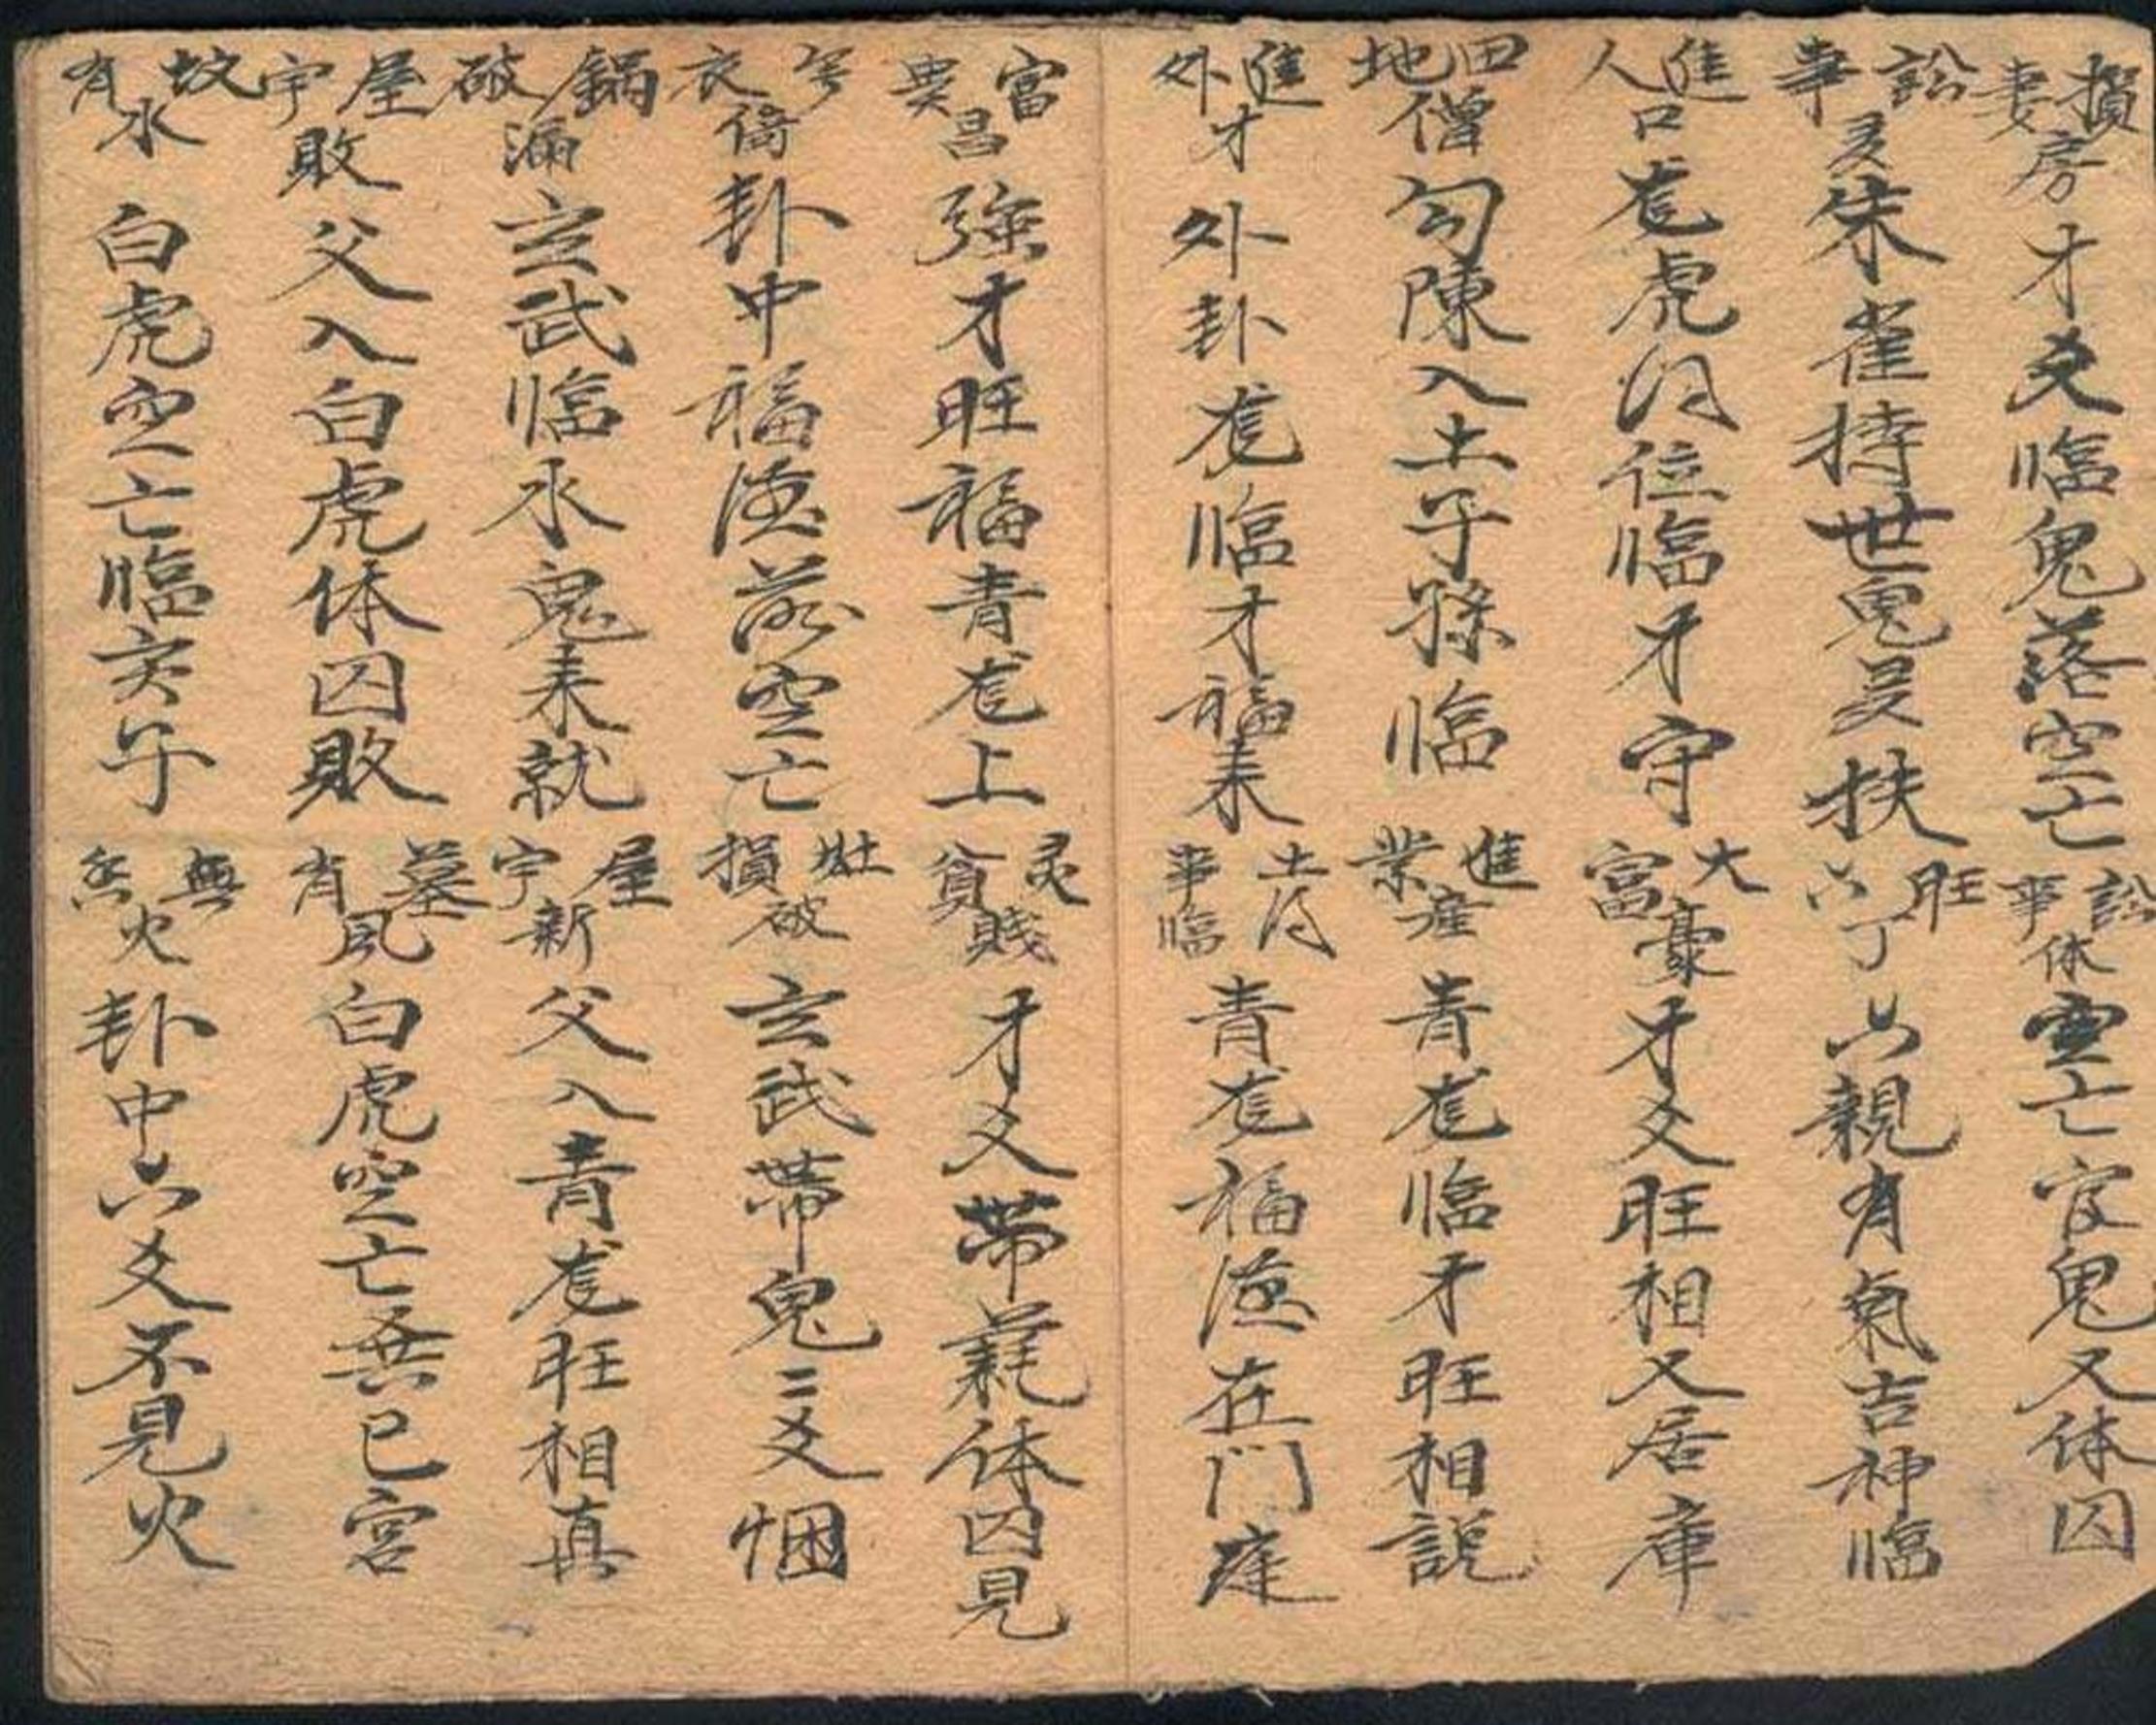 損妻房 才爻临鬼落空亡
訟事休 空亡官鬼又体囚
訟事 朱雀持世鬼旻扶
旺六丁 六親有氣吉神临
進人口 龙虎位临才守
大富豪 才爻旺相又居庫
田地僧 勾陳入土子孫临
進業産 青龙临才旺相説
進外才 外卦龙临才福来
事临 青龙福德在門庭
富貴昌 強才旺福青龙上
灵貧賤 才爻帶耗体囚見
衣 卦中福德落空亡
灶損破 玄武帶鬼二爻悃
鍋破漏 玄武临水鬼来就
屋宇新 父入青龙旺相真
屋宇敗 父入白虎体囚敗
墓有風 白虎空亡巳宮
坟有水 白虎空亡临亥子
無火 卦中六爻不見火